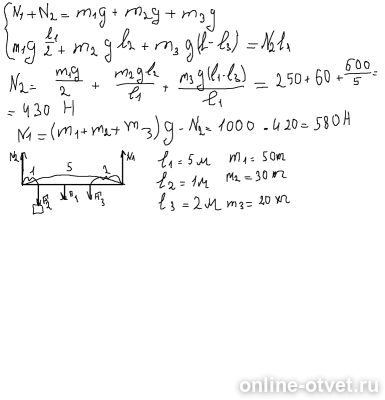 N1 + N2 = m1g + m2g + m3g
m1g l1/2 + m2 g l2 + m3 g(l - l3) = N2l1
N2 = m1g/2 + m2gl2/l1 + m3g(l1-l3)/l1 = 250 + 60 + 600/5 =
= 430 H
N1 = (m1 + m2 + m3)g - N2 = 1000 - 420 = 580H
N2 1 5 2 N1
l1 = 5м m1 = 50кг
l2 = 1м m2 = 30 кг
l3 = 2м m3 = 20 кг
online-otvet.ru